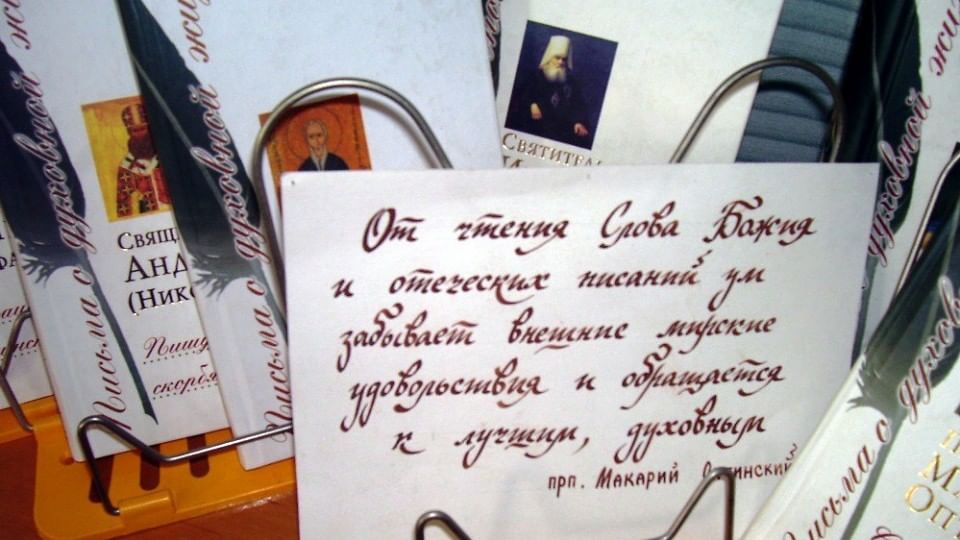 Письма о духовной жи
СВЯЩ
АНД
(НИКО
Пишу
скорбя
Письма о духовной жи
СВЯТИТЕЛ
От чтения Слова Божия
и отеческих писаний ум
забывает внешние мирские
удовольствия и обращается
к лучшим, духовным
прп. Макарий
духовной жи
Письма о духовно
МА
ОПТ